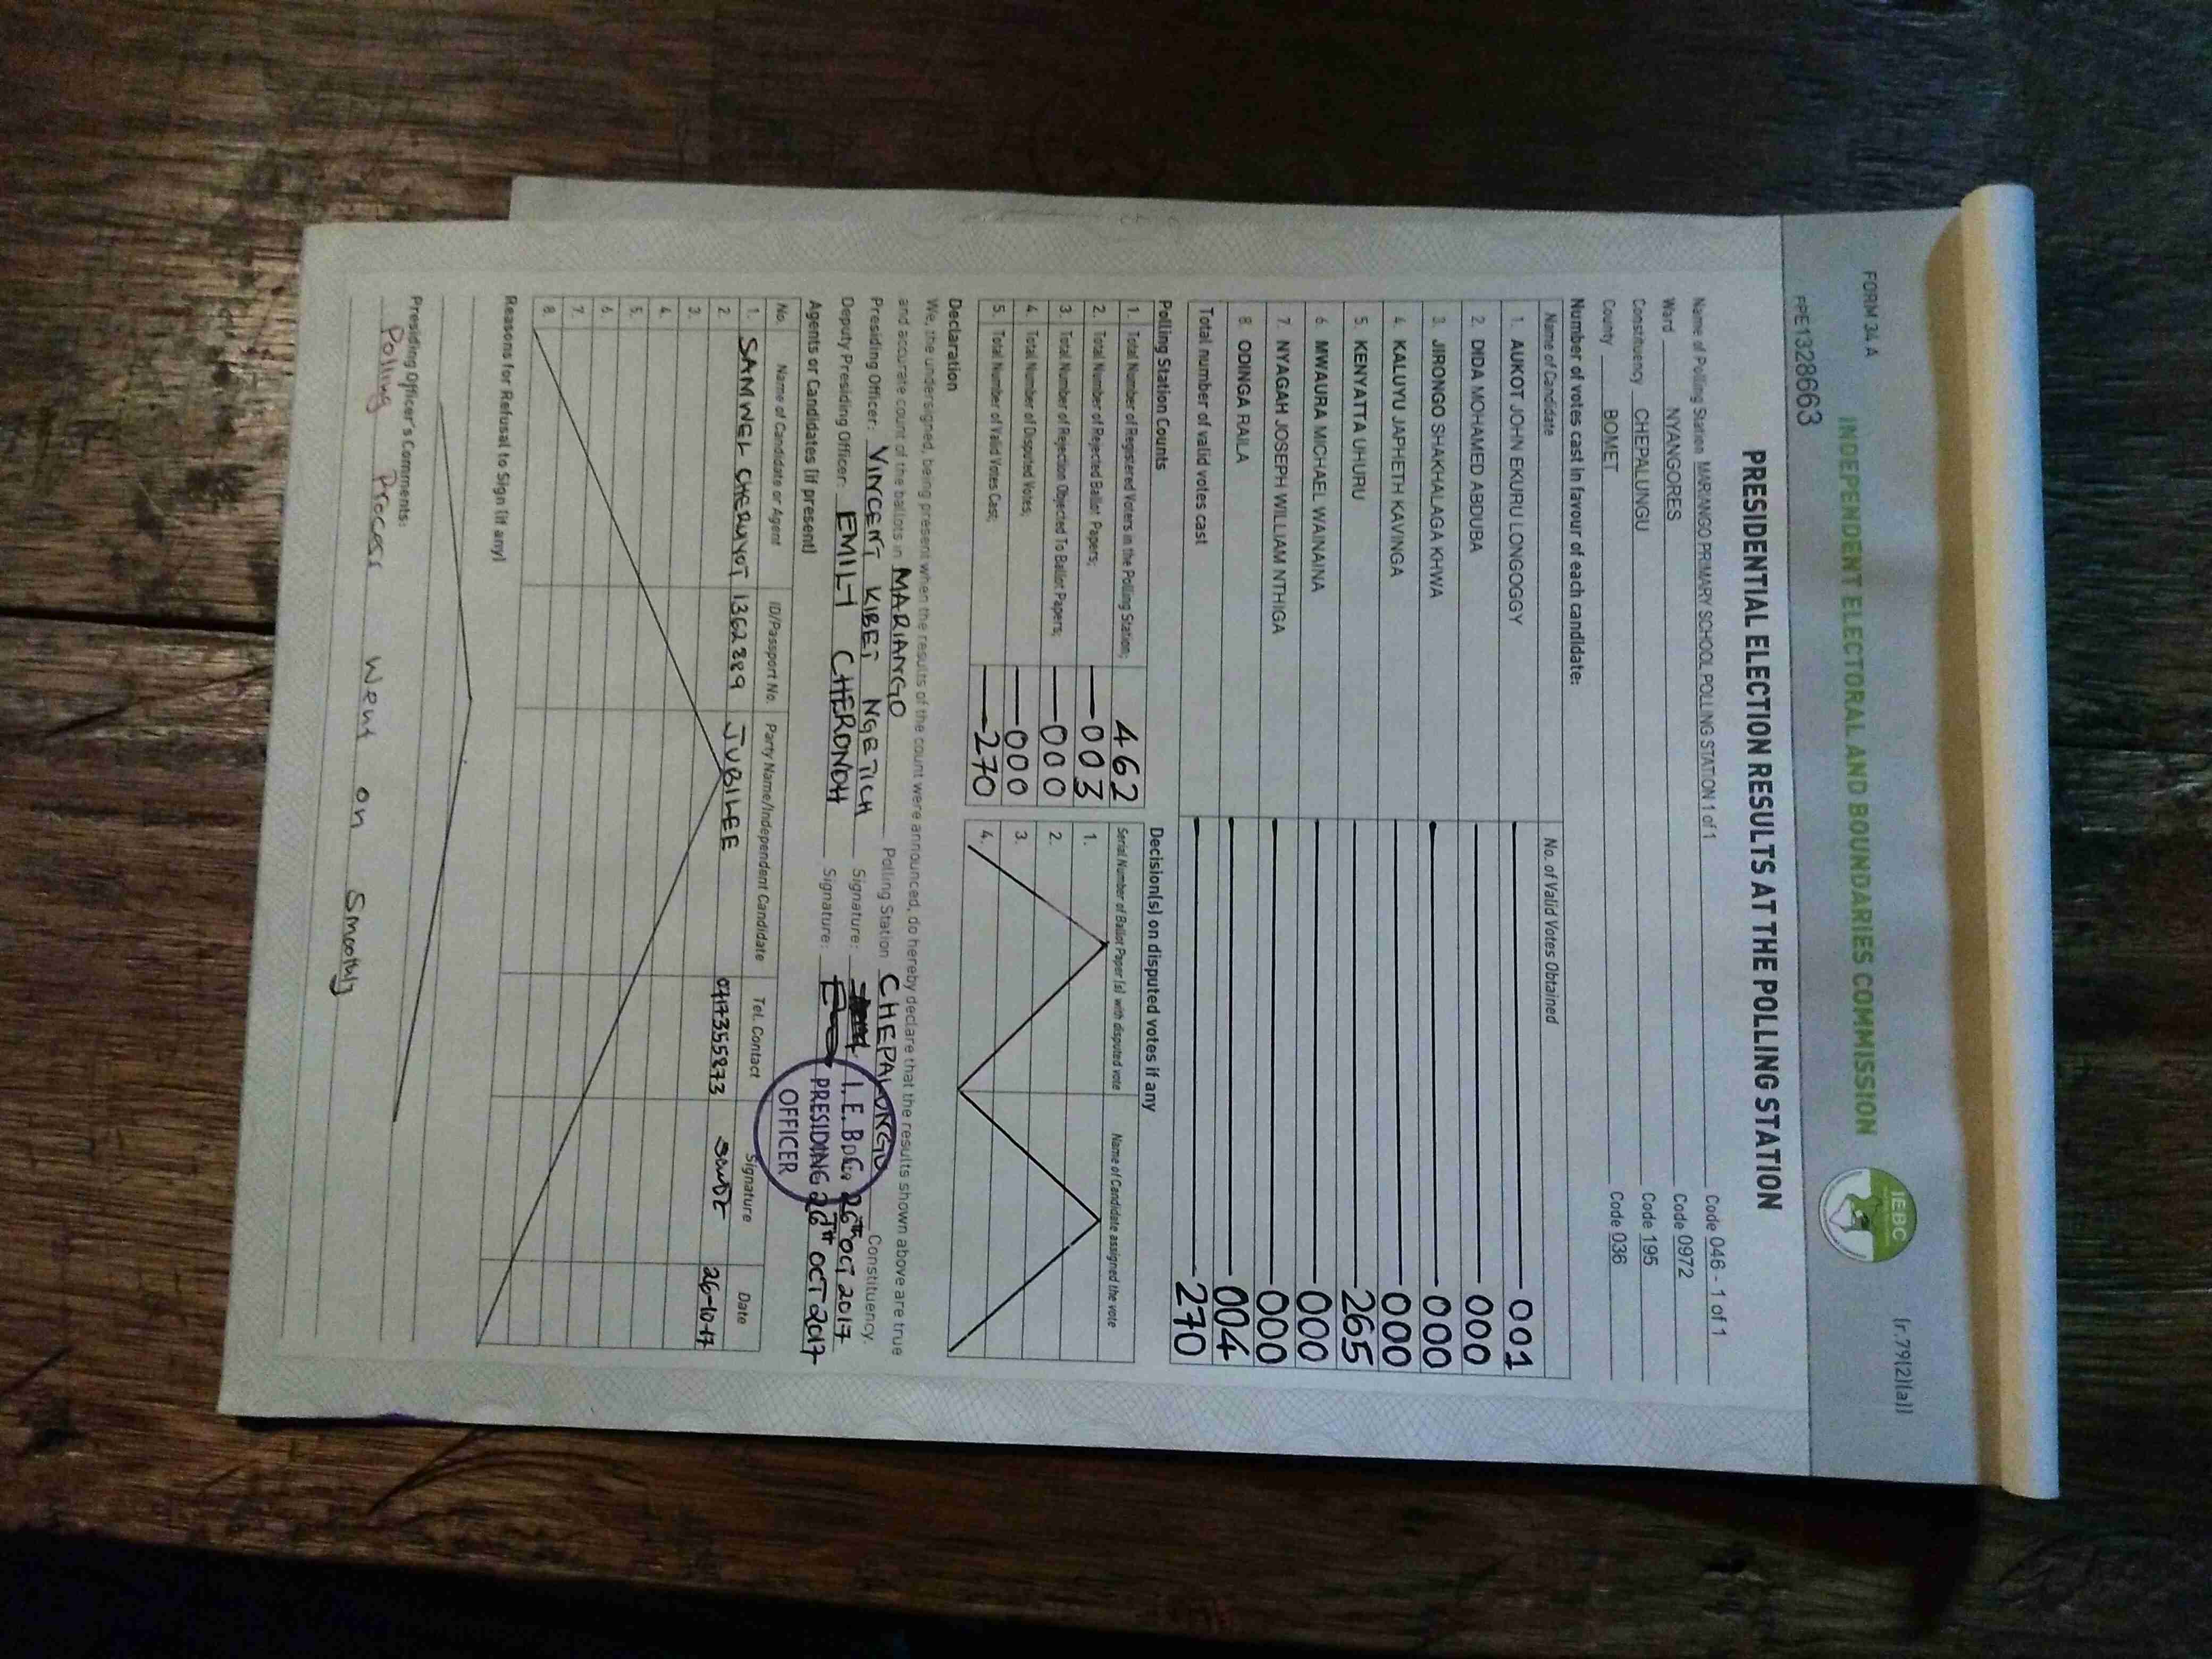 FORM 34 A
(r.79(2)(a))
INDEPENDENT ELECTORAL AND BOUNDARIES COMMISSION
IEBC
PPE1328663
PRESIDENTIAL ELECTION RESULTS AT THE POLLING STATION
Name of Polling Station MARIANGO PRIMARY SCHOOL POLLING STATION 1 of 1 Code 046 - 1 of 1
Ward NYANGORES Code 0972
Constituency CHEPALUNGU Code 195
County BOMET Code 036
Number of votes cast in favour of each candidate:
Name of Candidate No. of Valid Votes Obtained
1. AUKOT JOHN EKURU LONGOGGY 001
2. DIDA MOHAMED ABDUBA 000
3. JIRONGO SHAKHALAGA KHWA 000
4. KALUYU JAPHETH KAVINGA 000
5. KENYATTA UHURU 265
6. MWAURA MICHAEL WAINAINA 000
7. NYAGAH JOSEPH WILLIAM NTHIGA 000
8. ODINGA RAILA 004
Total number of valid votes cast 270
Polling Station Counts
1. Total Number of Registered Voters in the Polling Station; 462
2. Total Number of Rejected Ballot Papers; 003
3. Total Number of Rejection Objected To Ballot Papers; 000
4. Total Number of Disputed Votes; 000
5. Total Number of Valid Votes Cast; 270
Decision(s) on disputed votes if any
Serial Number of Ballot Paper(s) with disputed vote Name of Candidate assigned the vote
1.
2.
3.
4.
Declaration
We, the undersigned, being present when the results of the count were announced, do hereby declare that the results shown above are true
and accurate count of the ballots in MARIANGO Polling Station CHEPALUNGU Constituency.
Presiding Officer: VINCENT KIBET NGETICH Signature: 26TH OCT 2017
Deputy Presiding Officer: EMILY CHERONOH Signature: 26TH OCT 2017
I.E.B.C.
PRESIDING
OFFICER
Agents or Candidates (if present)
No. Name of Candidate or Agent ID/Passport No. Party Name/Independent Candidate Tel. Contact Signature Date
1. SAMWEL CHERUIYOT 1362889 JUBILEE 0717355873 26-10-17
2.
3.
4.
5.
6.
7.
8.
Reasons for Refusal to Sign (if any)
Presiding Officer's Comments:
Polling Process Went on Smoothly